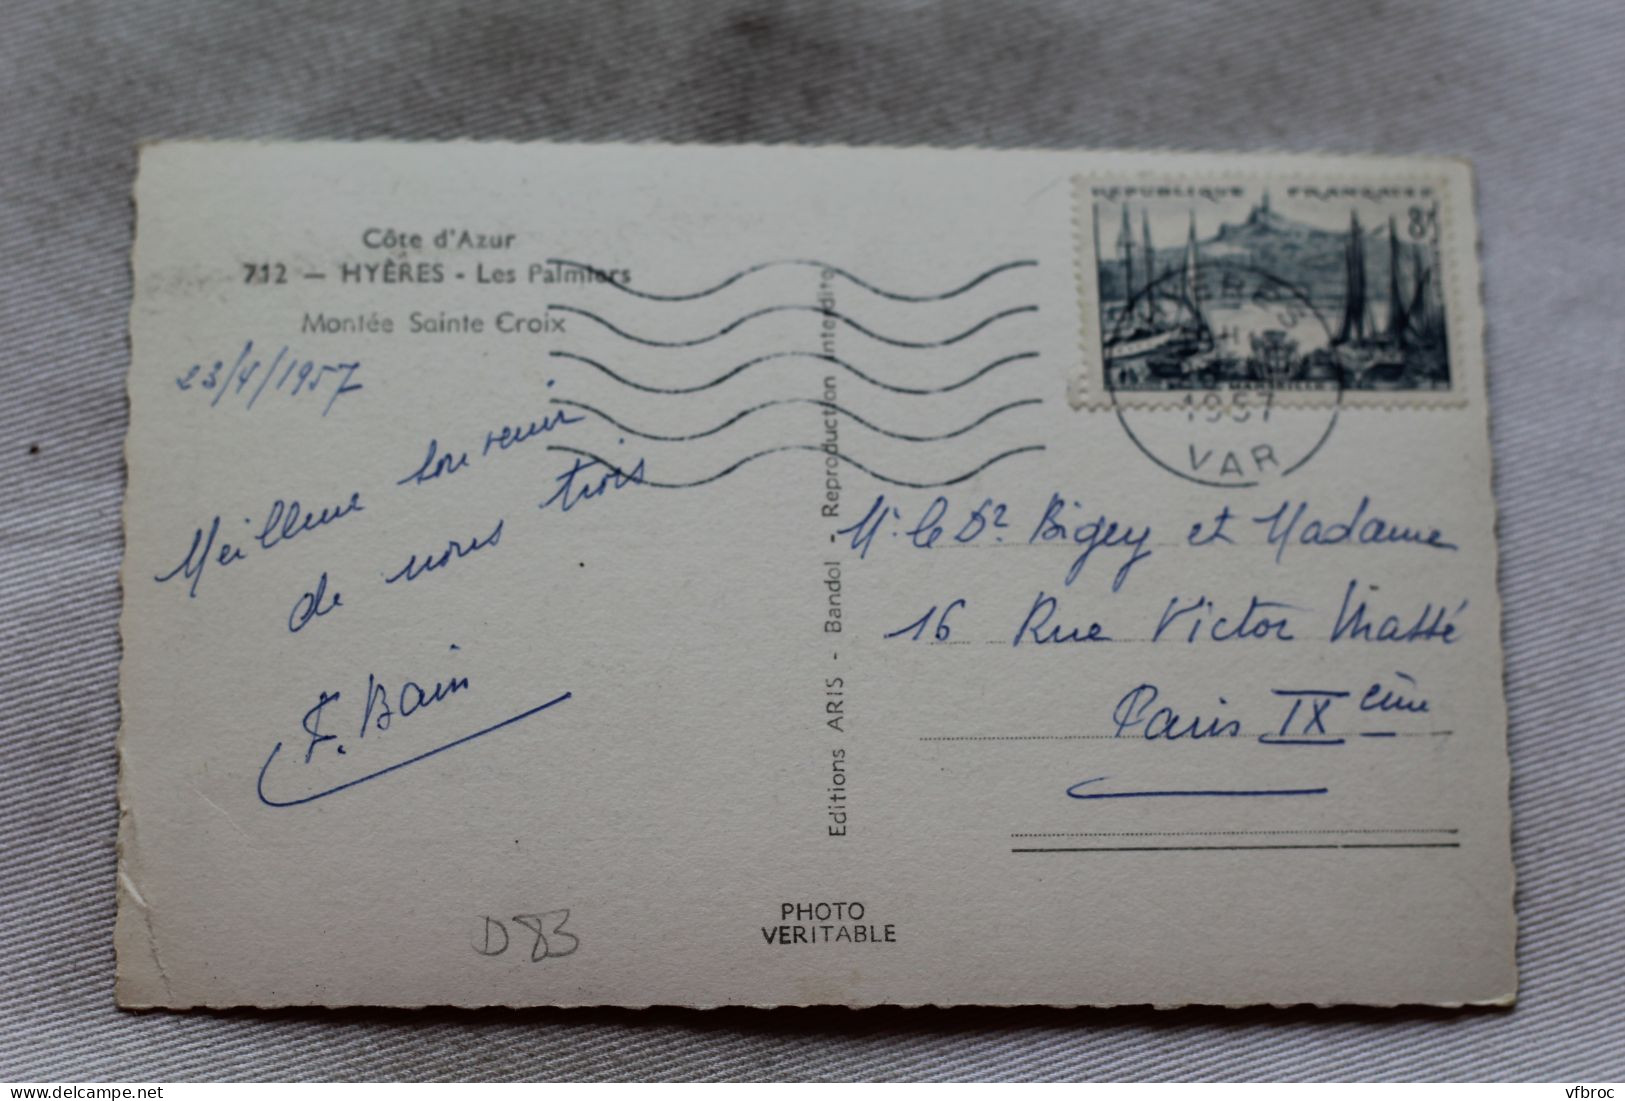 Côte d'Azur
712 — HYÈRES - Les Palmiers
Montée Sainte Croix
23/4/1957
Meilleur souvenir
de nous trois
F. Bain
D83
Editions ARIS - Bandol - Reproduction interdite
PHOTO
VERITABLE
REPUBLIQUE FRANÇAISE
8F
MARSEILLE
HYERES
1957
VAR
Mr le Dr Bigey et Madame
16 Rue Victor Massé
Paris IXème
vfbroc